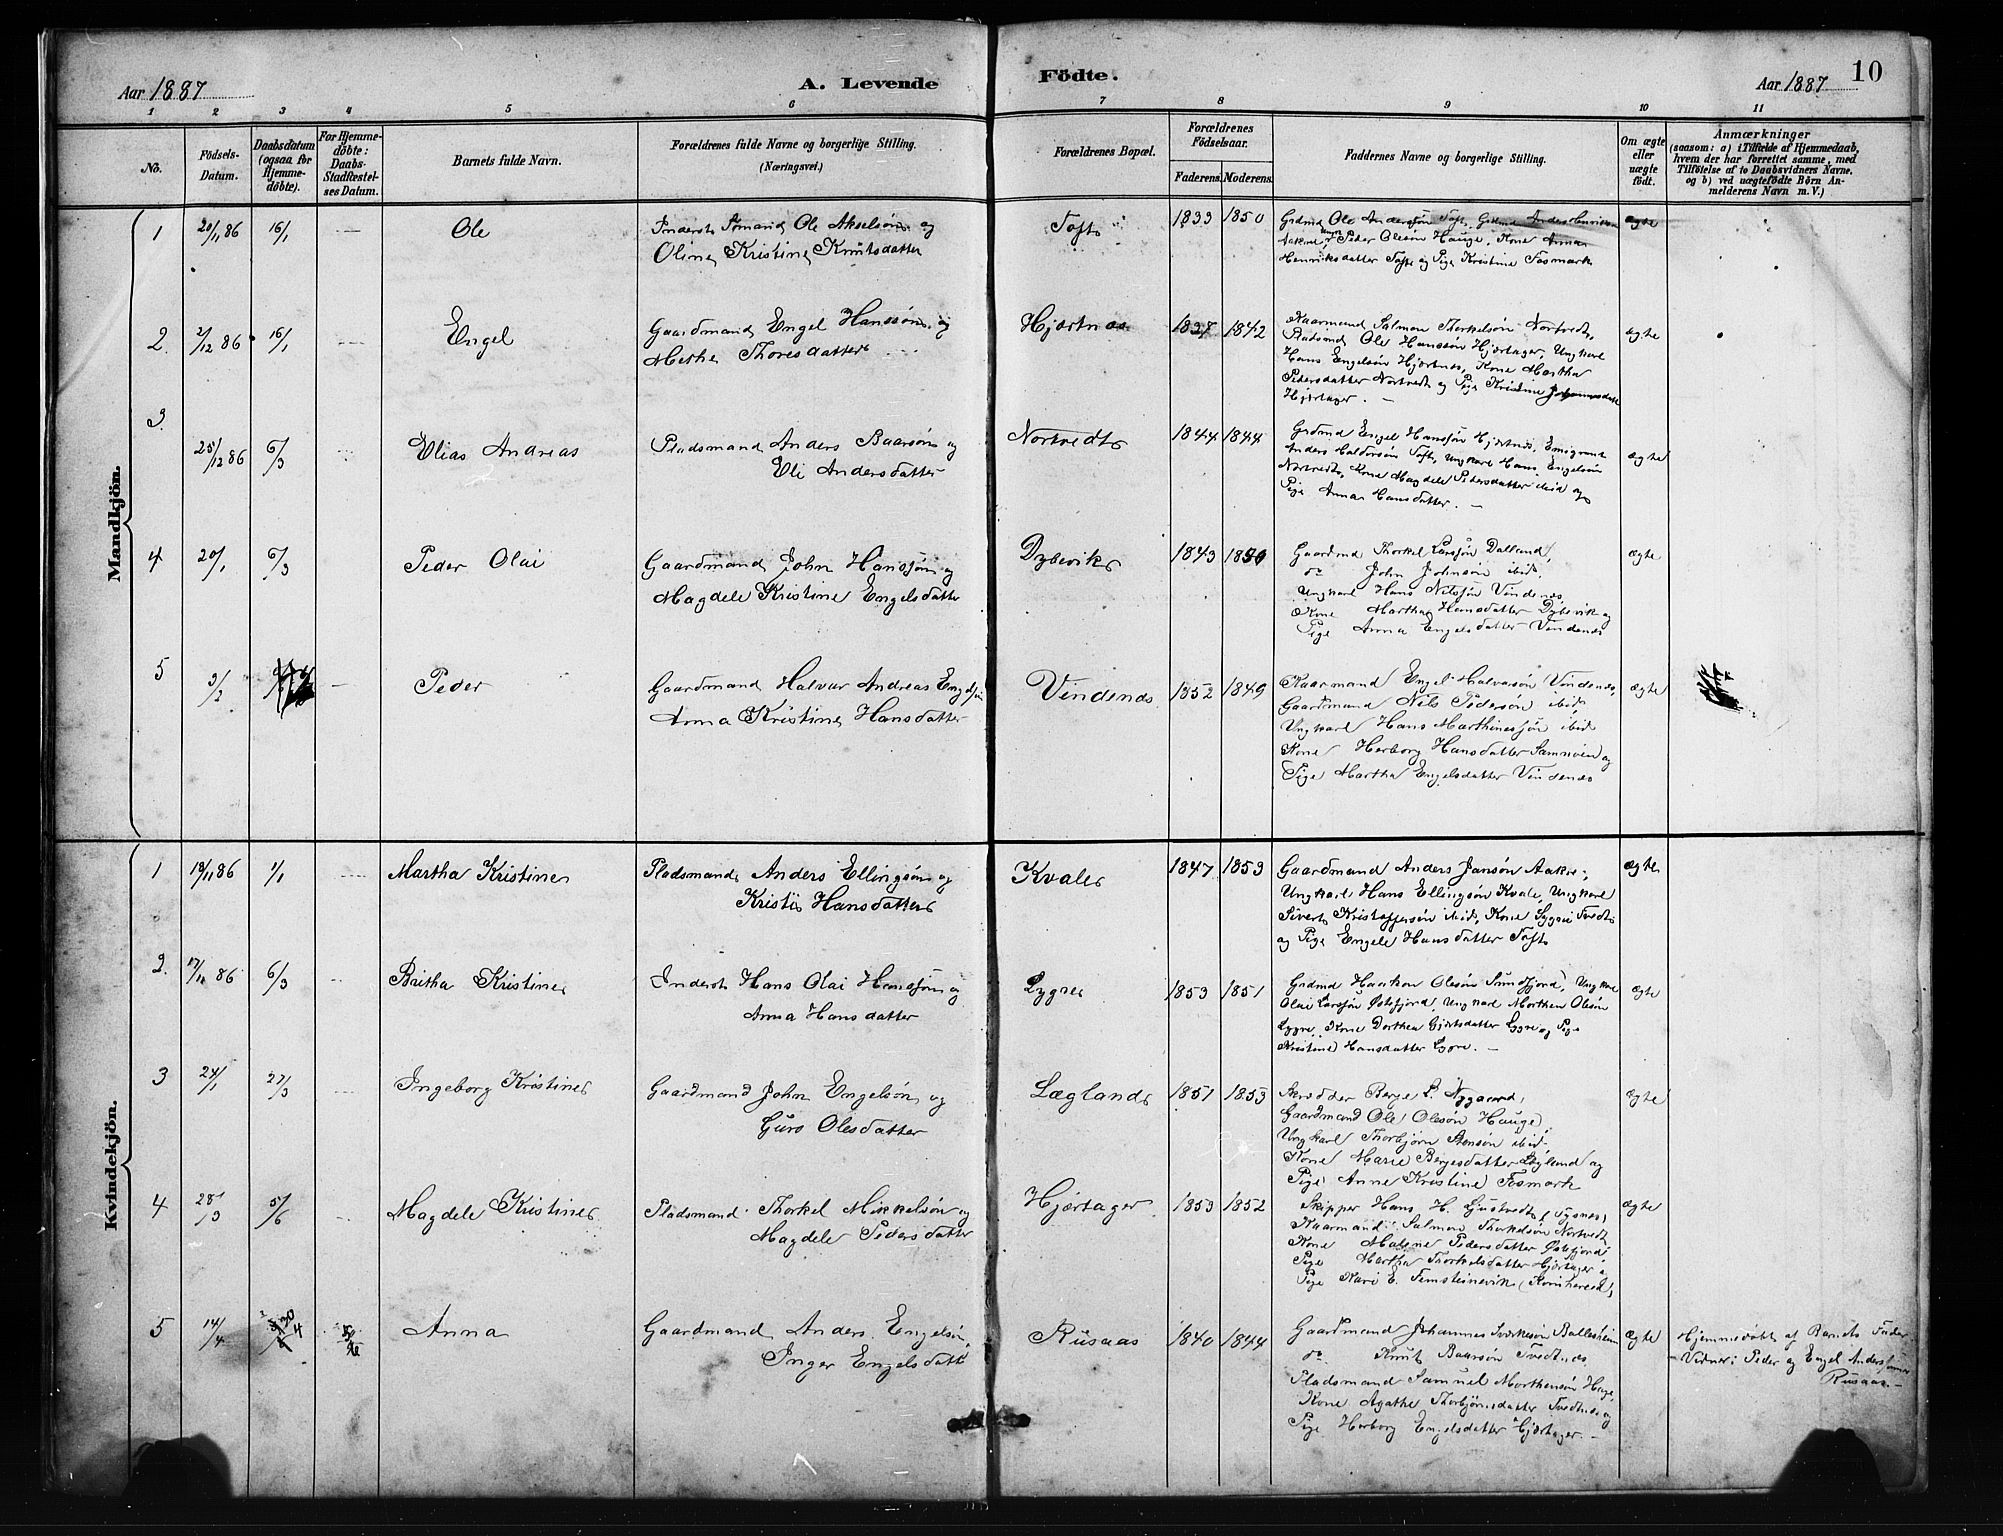 Aar 1887
A. Levende
Födte.
Aar 1887
10
1 2 3 4 5 6 7 8 9 10 11
No.
Födsels-
Datum.
Daabsdatum
(ogsaa for
Hjemme-
döbte).
For Hjemme-
döbte:
Daabs-
Stadfæstel-
ses Datum.
Barnets fulde Navn.
Forældrenes fulde Navne og borgerlige Stilling.
(Næringsvei.)
Forældrenes Bopæl.
Forældrenes
Födselsaar.
Faderens. Moderens.
Faddernes Navne og borgerlige Stilling.
Om ægte
eller
uægte
födt.
Anmærkninger
(saasom: a) i Tilfælde af Hjemmedaab,
hvem der har forrettet samme, med
Tilföielse af to Daabsvidners Navne,
og b) ved uægtefödte Börn An-
melderens Navn m. V.)
Mandkjön.
1 20/11 86 16/1 Ole
Inderst Ole Akselsøn og
Oline Kristine Knutsdatter
Toft 1833 1850
Grdmd Ole Anderssøn Toft, Grdmd Anders Henriksen
Aakre, Peder Olesøn Hauge, Kone Anna
Henriksdatter Toft og Pige Kristine Fosmark
ægte
2. 2/12 86 16/1 Engel
Gaardmand Engel Hanssøn og
Methe Thoresdatter
Hjørtnes 1837 1842
Kaarmand Salmon Thorkelsøn Nortvedt,
Pladsmd Ole Hanssøn Hjørtager, Ungkarl
Hans Engelsøn Hjørtnes, Kone Martha
Pedersdatter Nortvedt og Pige Kristine Johannesdatt
Hjørtager. —
ægte
3. 25/12 86 6/3 Elias Andreas
Pladsmand Anders Baarsøn og
Eli Andersdatter
Nortvedt 1844 1844
Grdmd Engel Hanssøn Hjørtnes, Emigrant
Anders Haldorsøn Toft, Ungkarl Hans Engelsøn
Nortvedt, Kone Magdele Pedersdatter ibid og
Pige Anna Hansdatter. —
ægte
4 20/1 6/3 Peder Olai
Gaardmand John Hanssøn og
Magdele Kristine Engelsdatter
Dybevik 1843 1850
Gaardmd Thorkel Larssøn Dalland,
do John Johnsøn ibid,
Ungkarl Hans Nilssøn Vindenes
Kone Martha Hansdatter Dybevik og
Pige Anna Engelsdatter Vindenes
ægte
5 3/2 — Peder
Gaardmand Halvar Andreas Engelsøn
Anna Kristine Hansdatter
Vindenes 1852 1849
Kaarmand Engel Halvasøn Vindenes,
Gaardmand Nils Pedersøn ibid,
Ungkarl Hans Marthinessøn ibid
Kone Herborg Hansdatter Samnøen og
Pige Martha Engelsdatter Vindenes
ægte
Kvindekjön.
1 18/11 86 1/1 Martha Kristine
Pladsmand Anders Ellingsøn og
Kristi Hansdatter
Kvale 1847 1853
Gaardmand Anders Jansøn Aakre,
Ungkarl Hans Ellingsøn Kvale, Ungkarl
Sivert Kristoffersøn ibid, Kone Sygni Tvedt
og Pige Engele Hansdatter Toft
ægte
2. 17/11 86 6/3 Britha Kristine
Inderst Hans Olai Hanssøn og
Anna Hansdatter
Lygre 1853 1851
Grdmd Haakon Olesøn Sundfjord, Ungkarl
Olai Larssøn Østefjord, Ungkarl Morthen Olesøn
Lygre, Kone Dorthea Gjertsdatter Lygre og Pige
Kristine Hansdatter Lygre. —
ægte
3 24/1 27/3 Ingeborg Kristine
Gaardmand John Engelsøn og
Guro Olesdatter
Læglands 1851 1853
Skrædder Berge L. Nygaard,
Gaardmand Ole Olesøn Hauge,
Ungkarl Thorbjørn Stenson ibid.
Kone Marie Bergesdatter Legland og
Pige Anne Kristine Fosmark
ægte
4 28/3 5/6 Magdele Kristine
Pladsmand Thorkel Mikkelsøn og
Magdele Pedersdatter
Hjørtager 1853 1852
Skipper Hans H. Gjustvedt (Tysnes)
Kaarmand Salmon Thorkelsøn Nortvedt
Kone Malene Pedersdatter Østefjord
Pige Martha Thorkelsdatter Hjørtager
Pige Kari E. Femsteinevik (Kvinherred)
ægte
5 14/4 Anna
Gaardmand Anders Engelsøn
Inger Engelsdatt
Rusaas 1840 1844
Gaardmand Johannes Sverkesøn Ballesheim
do Knut Baarsøn Tvedtnes
Pladsmand Samuel Morthensøn Hage
Kone Agathe Thorbjørnsdatter Tvedtnes og
Pige Herborg Engelsdatter Hjørtager. —
ægte
Hjemmedøbt af Barnets Fader
– Vidner: Peder og Engel Anderssønner
Rusaas. —